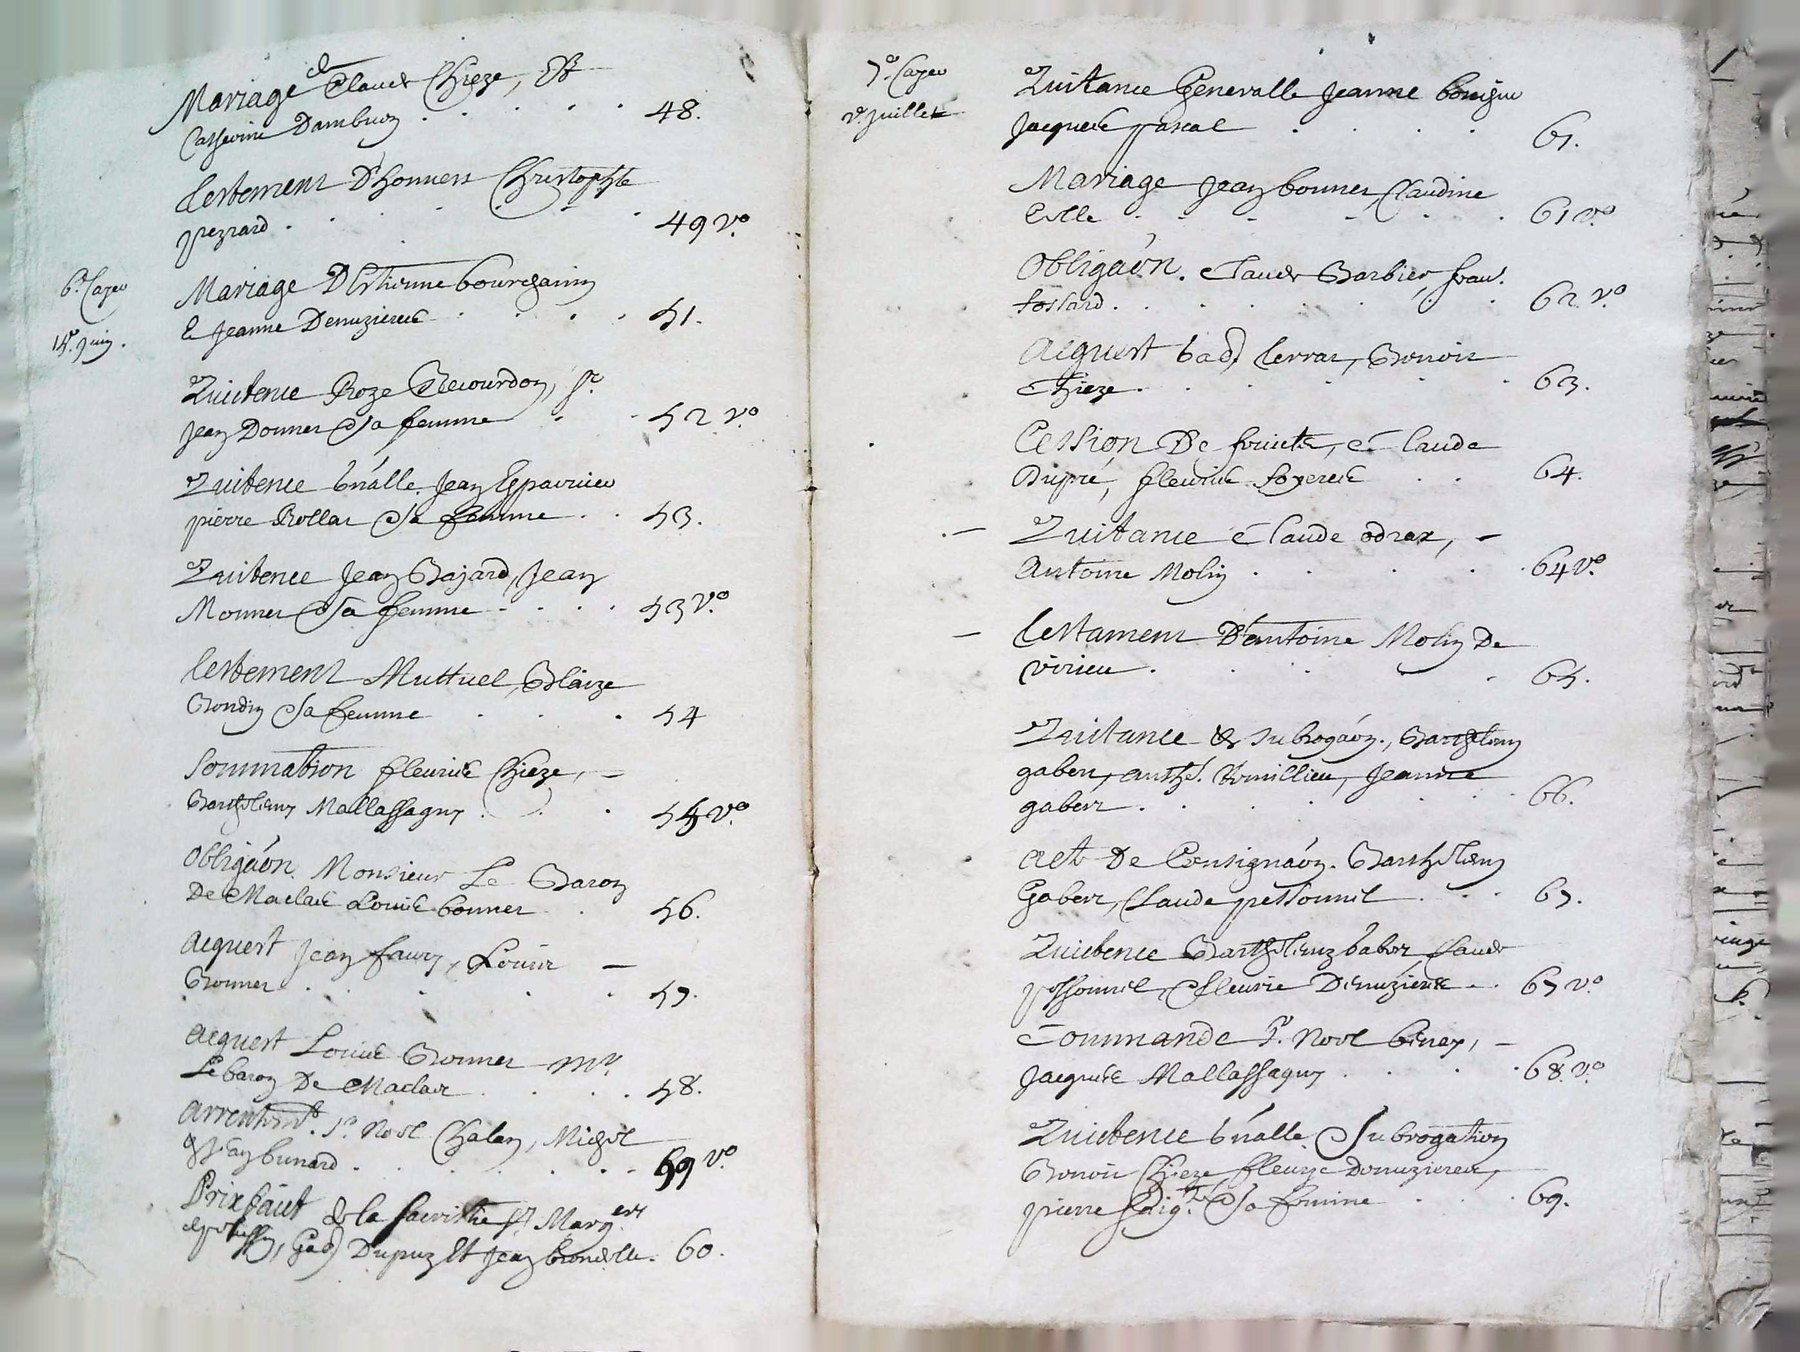 Mariage de Claude Chieze, Et
Catherine Dambuon 48.
testement D'honnere Christophle
peyrard 49 vo.
6e. Cayer
Mariage D'Estienne bourchanin
15e. Juin.
& Jeanne Denuzieres 51.
Quitence Roze Recourdon, Sr.
Jean Donner Sa femme 52 vo.
Quitence Jean Esparvier
pierre Rollat Sa femme 53.
Quitence Jean Bajard, Jean
Monner Sa femme 53 vo.
testement Muttuel, Blaize
Bondin Sa femme 54
Sommation fleurie Chieze,
Barthelemy Mallassagny 55 vo.
Obligaôn. Monsieur Le Baron
De Maclas Louis bonner 56.
acquest Jean faury, Louis
Bonner 57.
acquest Louis Bonner Mr.
Le baron De Maclas 58.
arrentemt. Sr. Noel Chalan, Michel
& Jean bunard 59 vo.
Prixfait de la sacristie St Marg
Dupuy Et Jean 60.
7e. Cayer
Quitance Generalle Jeanne
2e. Juillet
Jacques pascal 61.
Mariage Jean bonner, Claudine
61 vo.
Obligaôn. Claude Barbier, frans.
fossard 62. vo.
acquest terrat, Benoit
Chieze 63.
Cession De fruits, Claude
Dupré, fleurie foyeres 64.
Quitance Claude odrax,
Antoine Molin 64 vo.
testament D'antoine Molin De
virieu 65.
Quitance & subrogaôn., Barthelemy
gaben, Jeanne
gabert 66.
acte De Consignaôn. Barthelemy
Gabert, Claude pessonnel 67.
Quictence Barthelemy Gabert Claude
pessonnel, fleurie Denuzieres 67 vo.
Commande Sr. Noel
Jacques Mallassagny 68. vo.
Quictence Subrogation
Benoit Chieze fleurye Denuzieres,
pierre Sa femme 69.